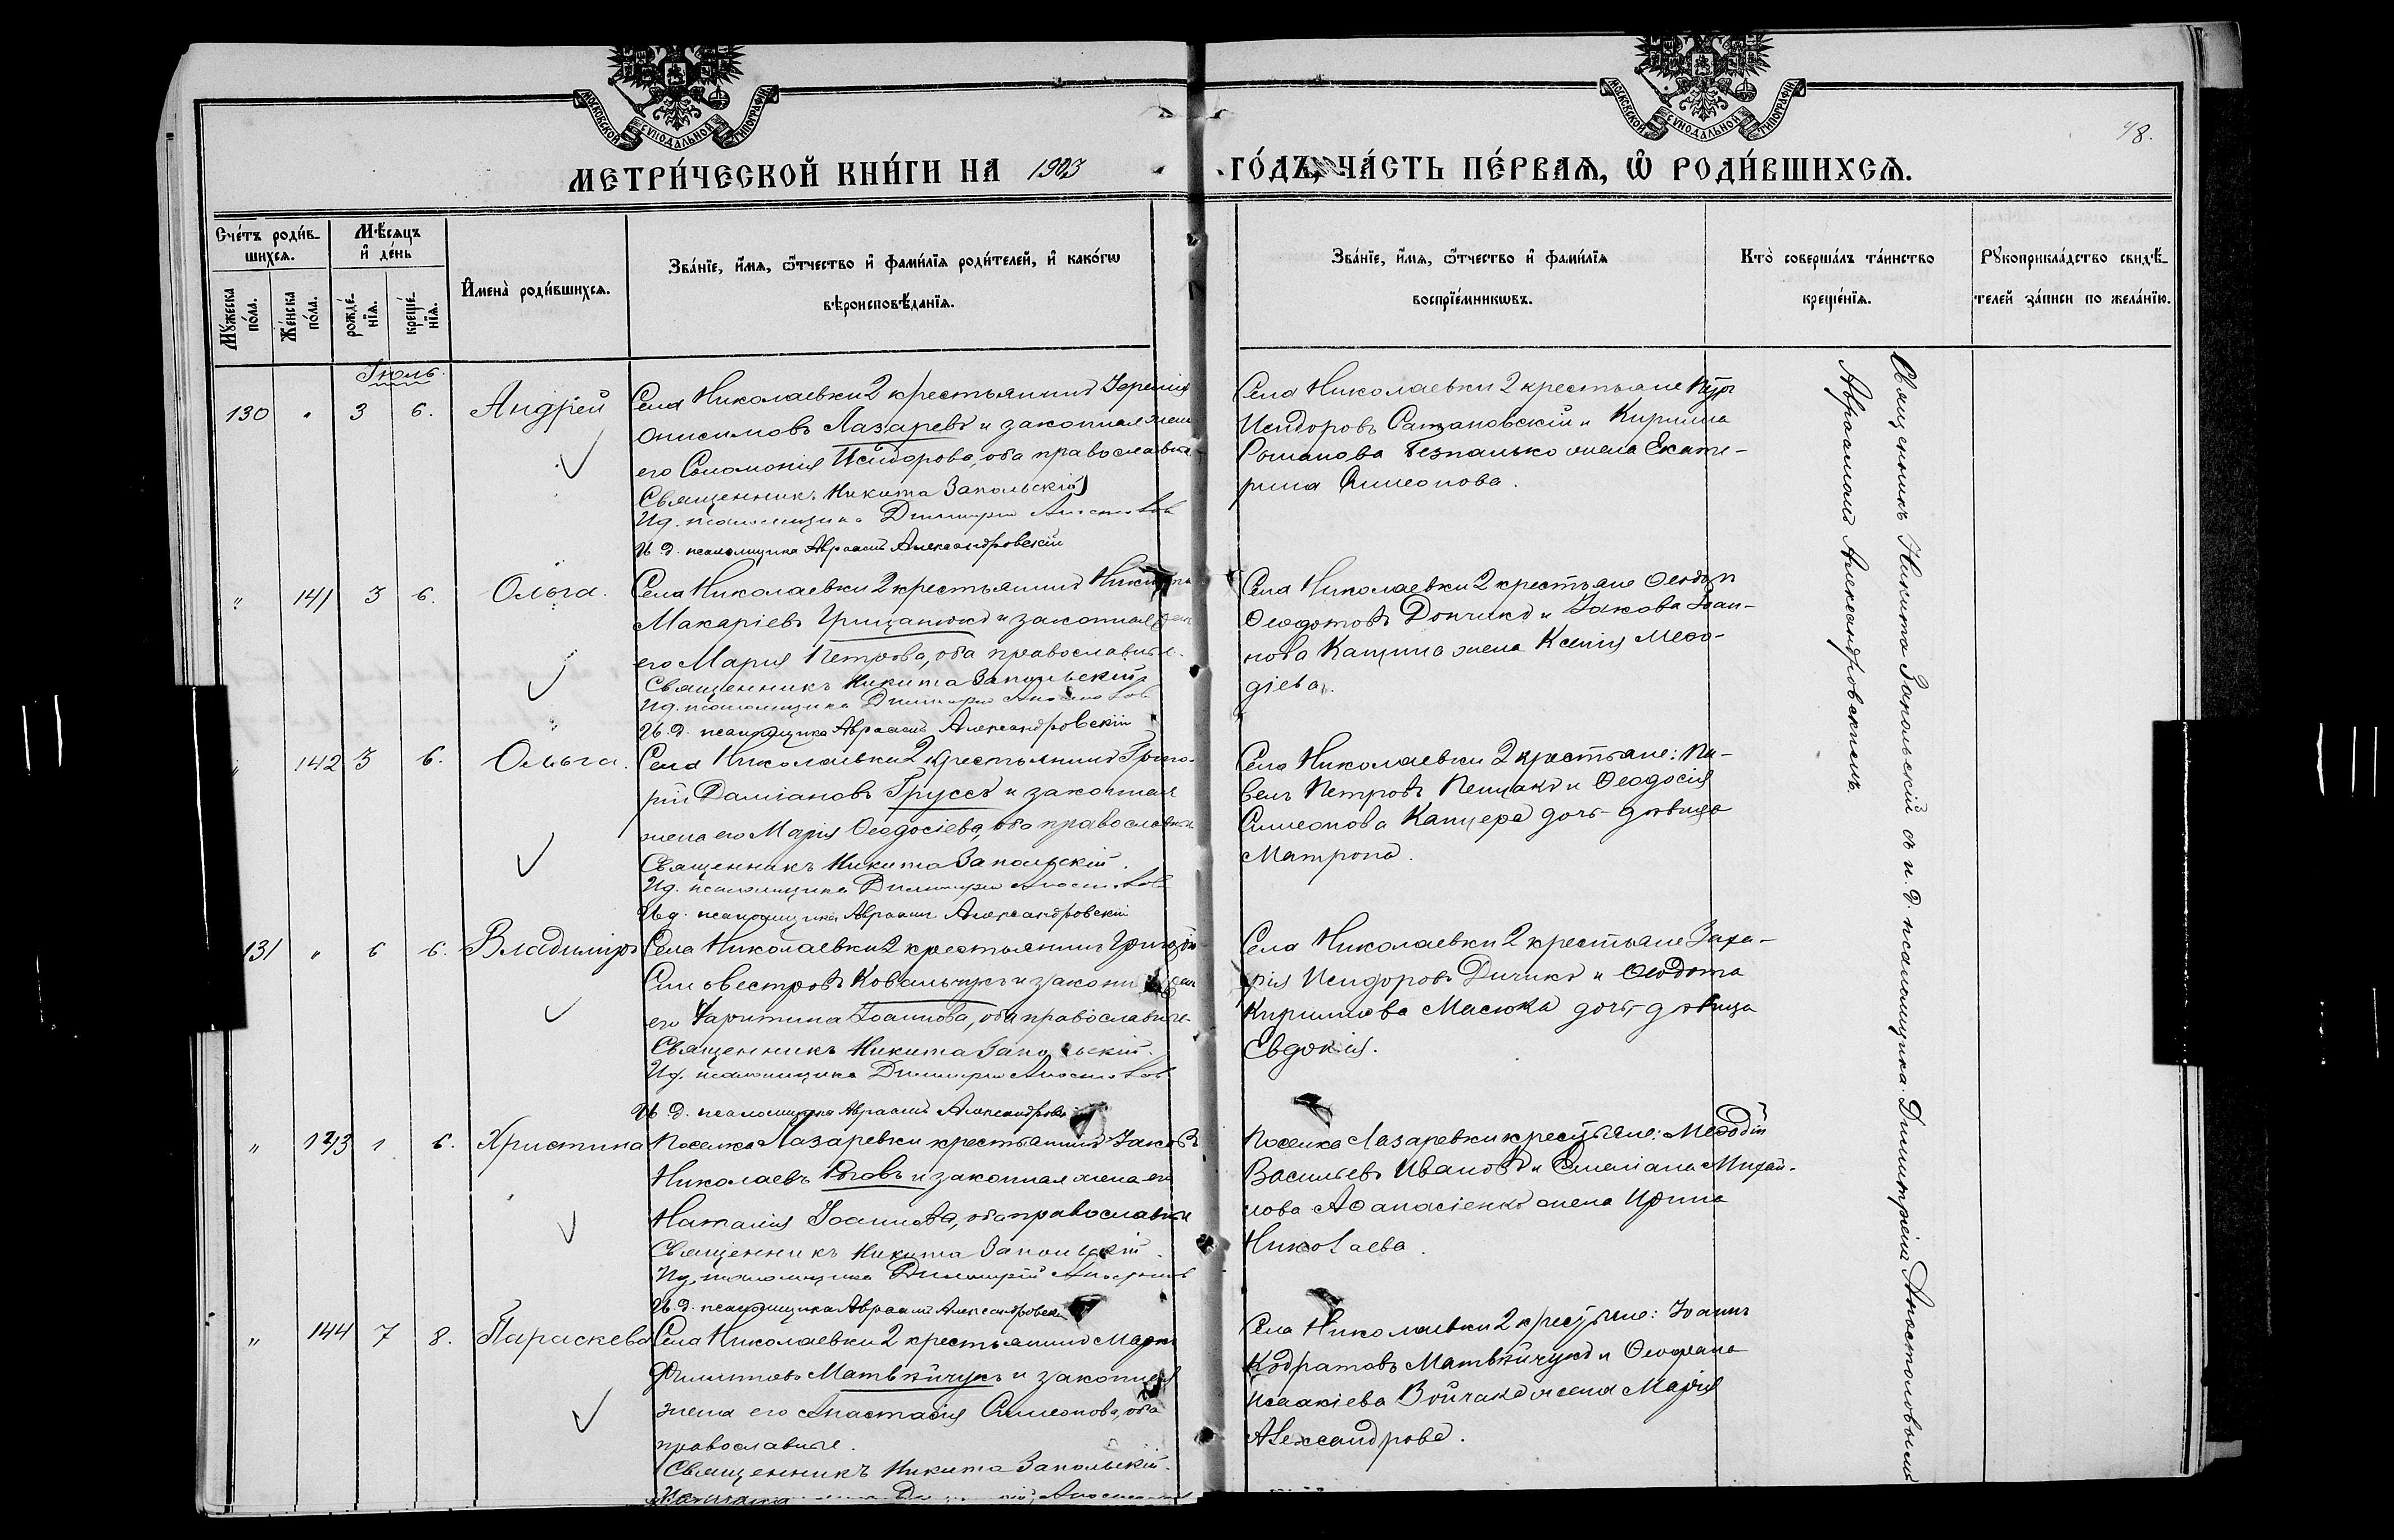 МОСКОВСКОЙ СУНОДАЛЬНОЙ ТИПОГРАФІИ
МОСКОВСКОЙ СУНОДАЛЬНОЙ ТИПОГРАФІИ
48.
МЕТРИ́ЧЕСКОЙ КНИ́ГИ НА 1903 ГО́ДЪ, ЧА́СТЬ ПЕ́РВАѦ, Ѡ҆ РОДИ́ВШИХСѦ.
Сче́тъ роди́в-
шихсѧ.
Мѣ́сѧцъ
и҆ де́нь
И҆мена̀ роди́вшихсѧ.
Зва́нїе, и҆́мѧ, ѻ҆́тчество и҆ фами́лїѧ роди́телей, и҆ како́гѡ
вѣроисповѣ́данїѧ.
Мꙋ́жеска
по́ла.
Же́нска
по́ла.
рожде́-
нїѧ.
креще́-
нїѧ.
Зва́нїе, и҆́мѧ, ѻ҆́тчество и҆ фами́лїѧ
воспрїе́мникѡвъ.
Кто̀ соверша́лъ та́инство
креще́нїѧ.
Рꙋкоприкла́дство свидѣ́-
телей за́писи по жела́нїю.
Іюль.
130 " 3 6. Андрей
Села Николаевки 2 крестьянинъ Іеремія
Онисимовъ Лазаревъ и законная жена
его Соломонія Исидорова, оба православные
Священникъ Никита Запольскій
И.д. псаломщика Димитрій Апостоловъ
И.д. псаломщика Авраамъ Александровскій
Села Николаевки 2 крестьяне
Исидоровъ Сатановскій и Кирилла
Романова Безпалько жена Екате-
рина Симеонова.
" 141 3 6. Ольга.
Села Николаевки 2 крестьянинъ Никита
Макаріевъ Грицанюкъ и законная жена
его Марія Петрова, оба православные.
Священникъ Никита Запольскій
И.д. псаломщика Димитрій Апостоловъ
И.д. псаломщика Авраамъ Александровскій
Села Николаевки 2 крестьяне Ѳеодоръ
Ѳеодотовъ Дончикъ и Іакова Іоан-
нова Кащина жена Ксенія Меѳо-
діева.
" 142 3 6. Ольга.
Села Николаевки 2 крестьянинъ Григо-
рій Даміановъ Груссъ и законная
жена его Марія Ѳеодосіева, оба православные
Священникъ Никита Запольскій.
И.д. псаломщика Димитрій Апостоловъ
И.д. псаломщика Авраамъ Александровскій
Села Николаевки 2 крестьяне: Па-
велъ Петровъ Пещакъ и Ѳеодосія
Симеонова Канцера дочь-дѣвица
Матрона.
131 " 6 6. Владимиръ
Села Николаевки 2 крестьянинъ Григорій
Сильвестровъ Ковальчукъ и законная жена
его Харитина Іоаннова, оба православные
Священникъ Никита Запольскій.
И.д. псаломщика Димитрій Апостоловъ
И.д. псаломщика Авраамъ Александровскій
Села Николаевки 2 крестьяне Заха-
рія Исидоровъ Дичикъ и Ѳеодота
Кириллова Масюка дочь-дѣвица
Евдокія.
" 143 1 6. Христина
Поселка Лазаревки крестьянинъ Іаковъ
Николаевъ Роговъ и законная жена его
Наталія Іоаннова, оба православные
Священникъ Никита Запольскій.
И.д. псаломщика Димитрій Апостоловъ
И.д. псаломщика Авраамъ Александровскій
Поселка Лазаревки крестьяне: Меѳодій
Васильевъ Ивановъ и Емеліана Михай-
лова Аѳанасіенко жена Ирина
Николаева.
" 144 7 8. Параскева
Села Николаевки 2 крестьянинъ Маркъ
Филипповъ Матвѣйчукъ и законная
жена его Анастасія Симеонова, оба
православные.
Священникъ Никита Запольскій.
Села Николаевки 2 крестьяне: Іоаннъ
Кодратовъ Матвѣйчукъ и Ѳеофана
Исаакіева Войчака жена Марія
Александрова.
Священникъ Никита Запольскій съ и.д. псаломщика Димитріемъ Апостоловымъ
Авраамомъ Александровскимъ